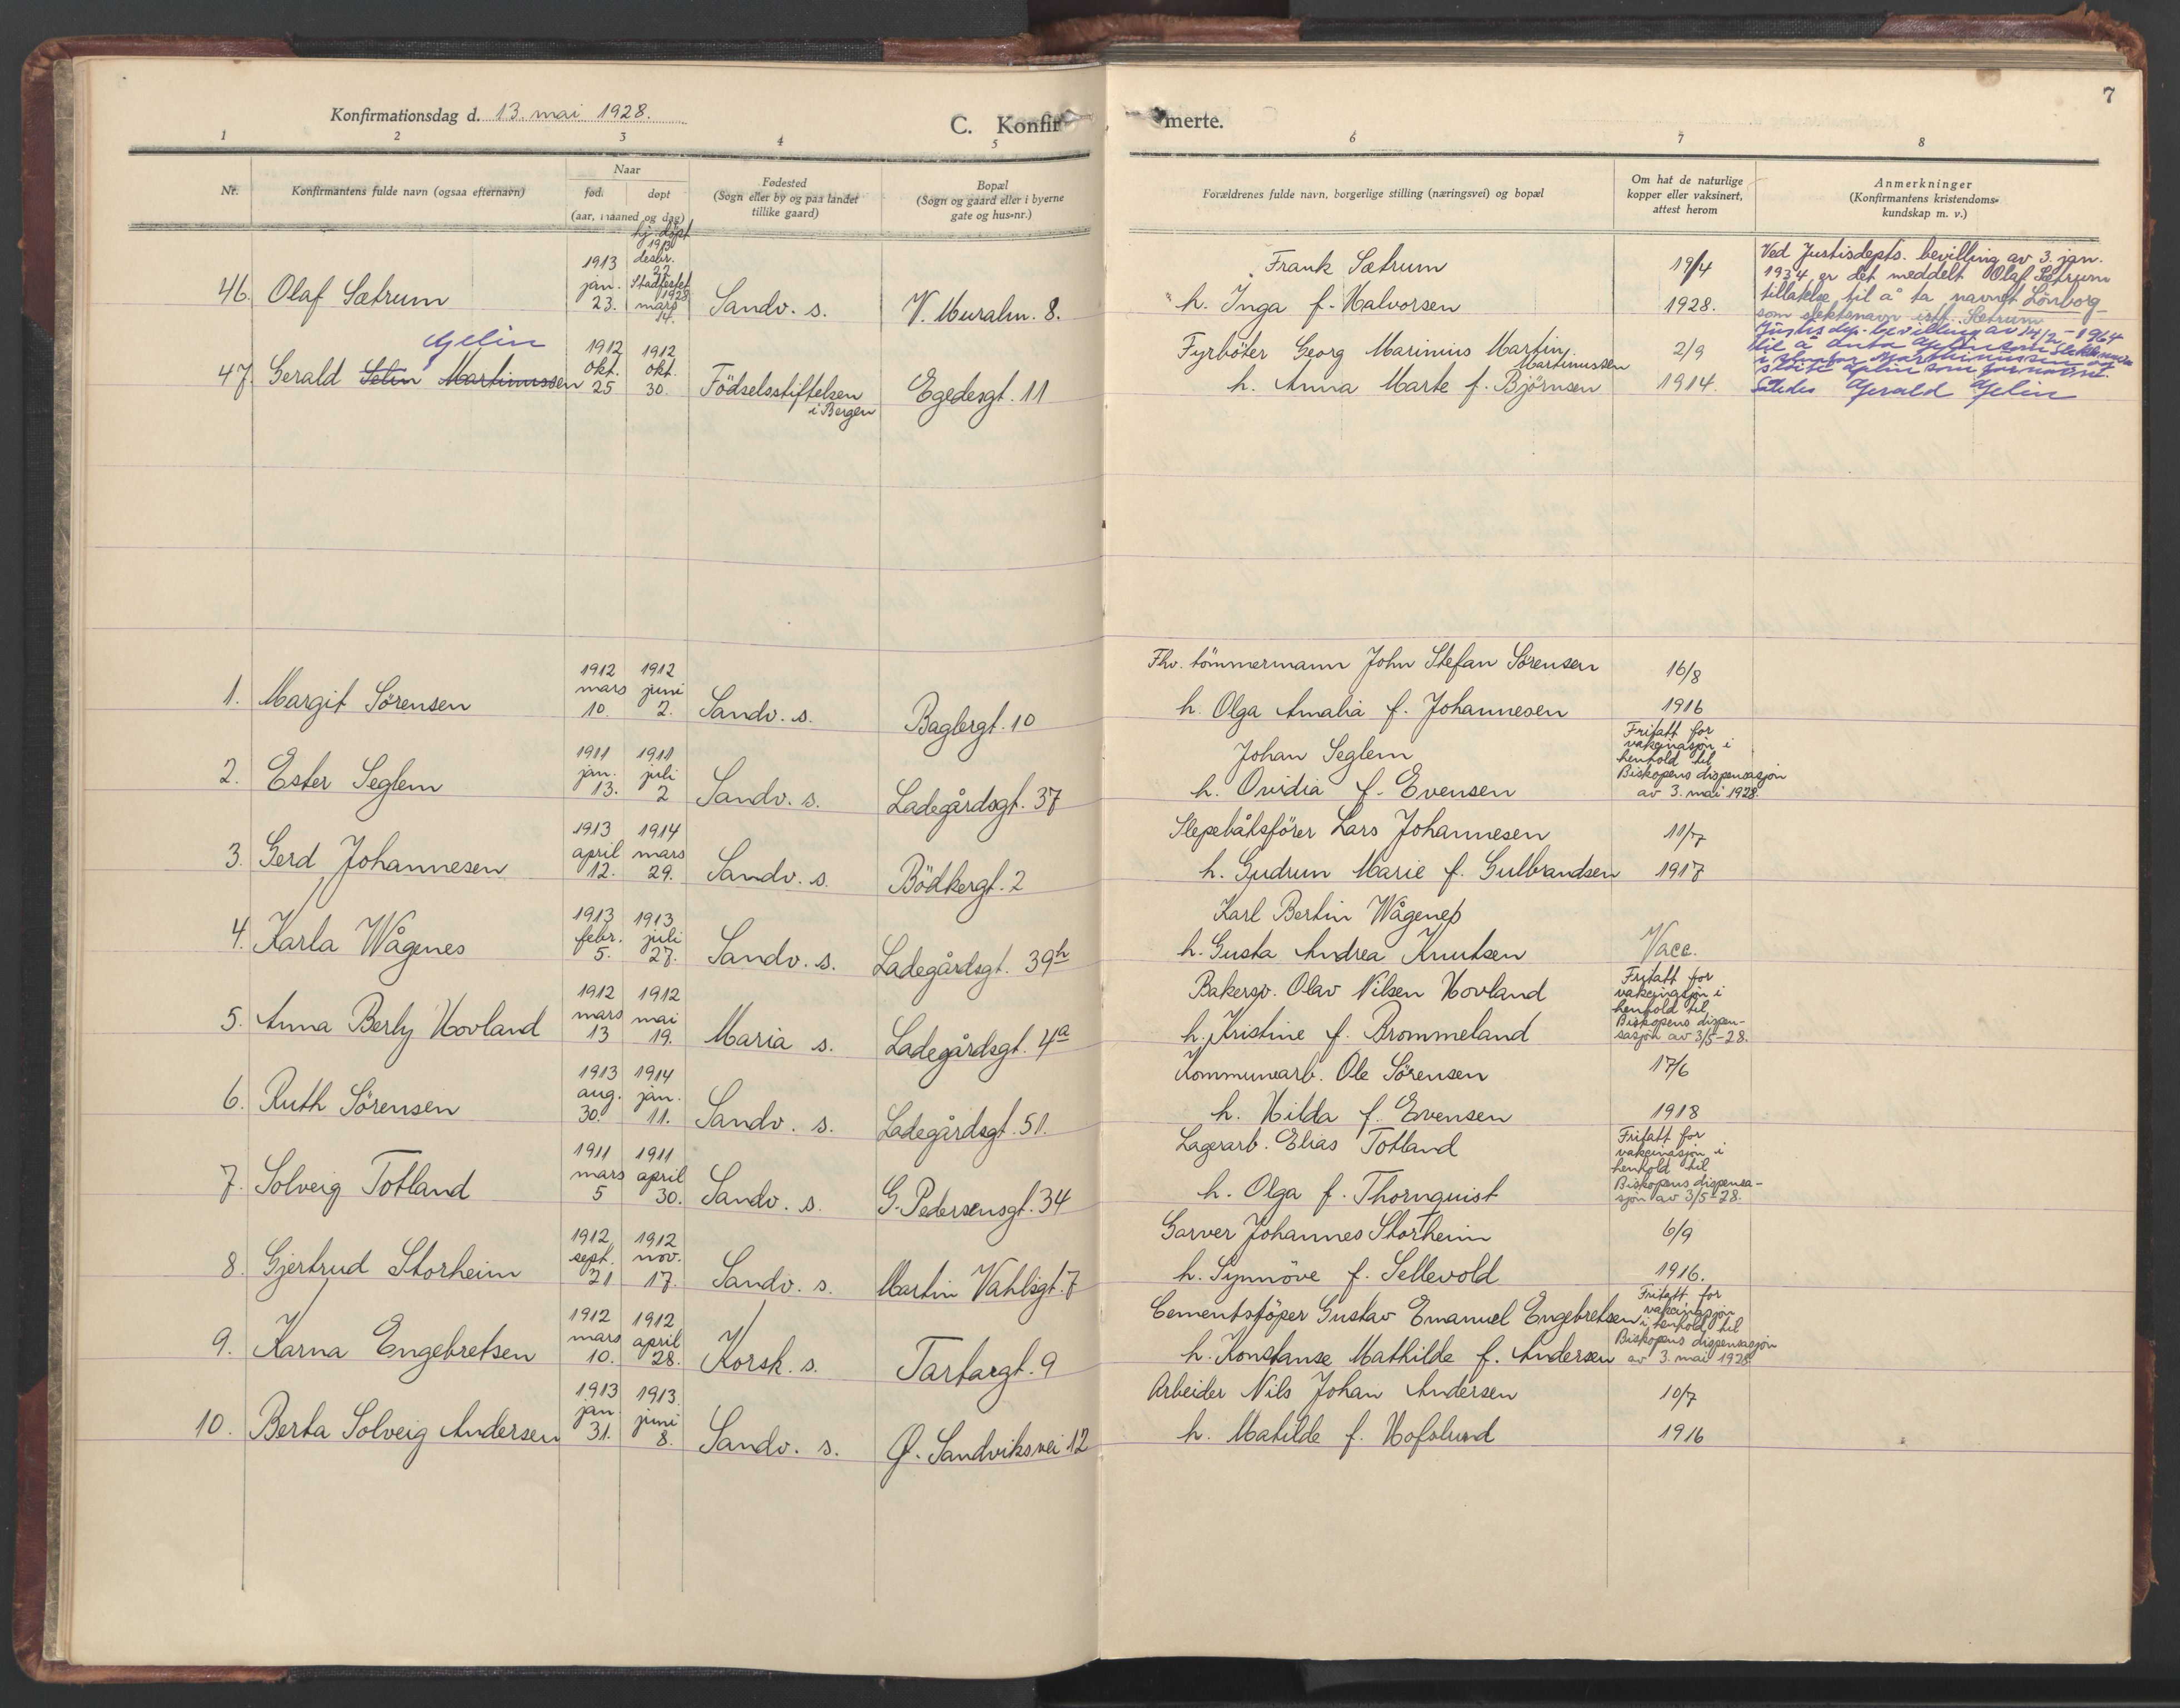 Konfirmationsdag d. 13. mai 1928.
C. Konfirmerte.
7
1 2 3 4 5 6 7 8
Nr.
Konfirmantens fulde navn (ogsaa efternavn)
Naar
fød. døpt
(aar, maaned og dag)
Fødested
(Sogn eller by og paa landet
tillike gaard)
Bopæl
(Sogn og gaard eller i byerne
gate og hus-nr.)
Forældrenes fulde navn, borgerlige stilling (næringsvei) og bopæl
Om hat de naturlige
kopper eller vaksinert,
attest herom
Anmerkninger
(Konfirmantens kristendoms-
kundskap m. v.)
46. Olaf Sætrum
1913
jan.
23.
hj. døpt
1913
desbr.
27.
Stadfestet
1928
mars
14.
Sandv. s.
V. Muralm. 8.
Frank Sætrum
h. Inga f. Halvorsen
19/4
1928.
Ved Justisdepts. bevilling av 3. jan.
1934 er det meddelt Olaf Sætrum
tillatelse til å ta navnet Lönborg
som slektsnavn istf. Sætrum
47. Gerald Selin Martinussen
Gelin
1912
okt.
25
1912
okt.
30.
Födselsstiftelsen
i Bergen
Egedesgt. 11
Fyrböter Georg Marinius Martin
Martinussen
h. Anna Marte f. Björnsen
2/9
1914.
Justisdep. bevilling av 14/2 - 1964
til å anta Gelin som slektsnavn
i stedet for Martinussen og
sløife Gelin som fornavn.
Således Gerald Gelin
1. Margit Sörensen
1912
mars
10.
1912
juni
2.
Sandv. s.
Baglergt. 10
Fhv. tömmermann John Stefan Sörensen
h. Olga Amalia f. Johannesen
16/8
1916
2. Ester Seglem
1911
jan.
13.
1911
juli
2
Sandv. s.
Ladegårdsgt. 37
Johan Seglem
h. Ovidia f. Evensen
Fritatt for
vakcinasjon i
henhold til
Biskopens dispensasjon
av 3. mai 1928.
3. Gerd Johannesen
1913
april
12.
1914
mars
29.
Sandv. s.
Bödkergt. 2
Slepebåtsförer Lars Johannesen
h. Gudrun Marie f. Gulbrandsen
11/7
1917
4. Karla Wågenes
1913
febr.
5.
1913
juli
27.
Sandv. s.
Ladegårdsgt. 39h
Karl Bertin Wågenes
h. Gusta Andrea Knutsen
Vacc.
5. Anna Berly Hovland
1912
mars
13
1912
mai
19.
Maria s.
Ladegårdsgt. 4a
Bakersv. Olav Nilsen Hovland
h. Kristine f. Brommeland
Fritatt for
vakcinasjon i
henhold til
Biskopens dispen-
sasjon av 3/5-28.
6. Ruth Sörensen
1913
aug.
30.
1914
jan.
11.
Sandv. s.
Ladegårdsgt. 51.
Kommunearb. Ole Sörensen
h. Hilda f. Evensen
17/6
1918
7. Solveig Totland
1911
mars
5
1911
april
30.
Sandv. s.
G. Pedersensgt. 34
Lagerarb. Elias Totland
h. Olga f. Thornquist
Fritatt for
vakcinasjon i
henhold til
Biskopens dispensa-
sjon av 3/5-28.
8. Gjertrud Storheim
1912
sept.
21
1912
nov.
17.
Sandv. s.
Martin Vahlsgt. 7
Garver Johannes Storheim
h. Synnöve f. Sellevold
6/9
1916.
9. Karna Engebretsen
1912
mars
10.
1912
april
28.
Korsk. s.
Tartargt. 9
Cementstöper Gustav Emanuel Engebretsen
h. Konstanse Mathilde f. Andersen
Fritatt for
vakcinasjon
i henhold til
Biskopens dispensasjon
av 3. mai 1928
10. Berta Solveig Andersen
1913
jan.
31.
1913.
juni
8.
Sandv. s.
Ø. Sandviksvei 12
Arbeider Nils Johan Andersen
h. Matilde f. Hofslund
10/7
1916